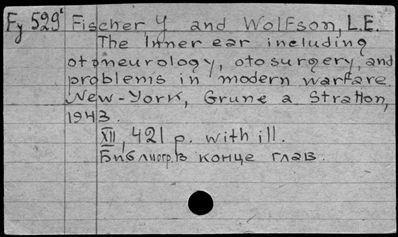 Fy 529¹ Fischer Y and Wolfson, L.E.
The Inner ear including
otoneurology, otosurgery, and
problems in modern warfare
New-York, Grune a Stratton,
1943.
XII, 421 p. with ill.
Библиогр. в конце глав.